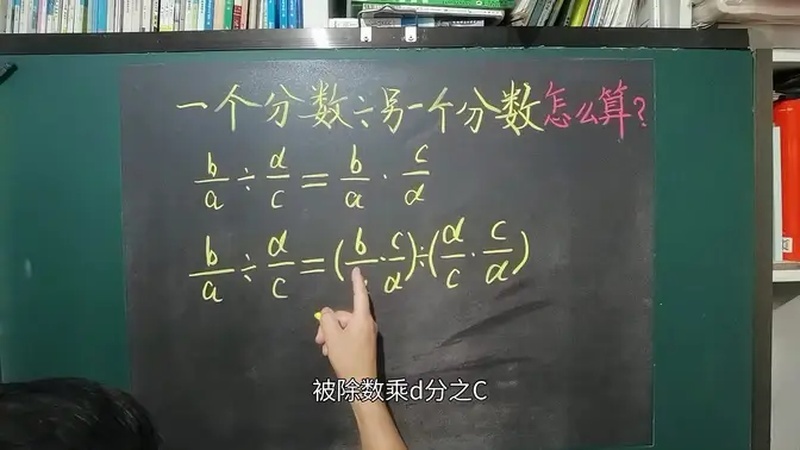 一个分数÷另一个分数怎么算?
b/a ÷ d/c = b/a · c/d
b/a ÷ d/c = (b/a · c/d) ÷ (d/c · c/d)
被除数乘d分之C